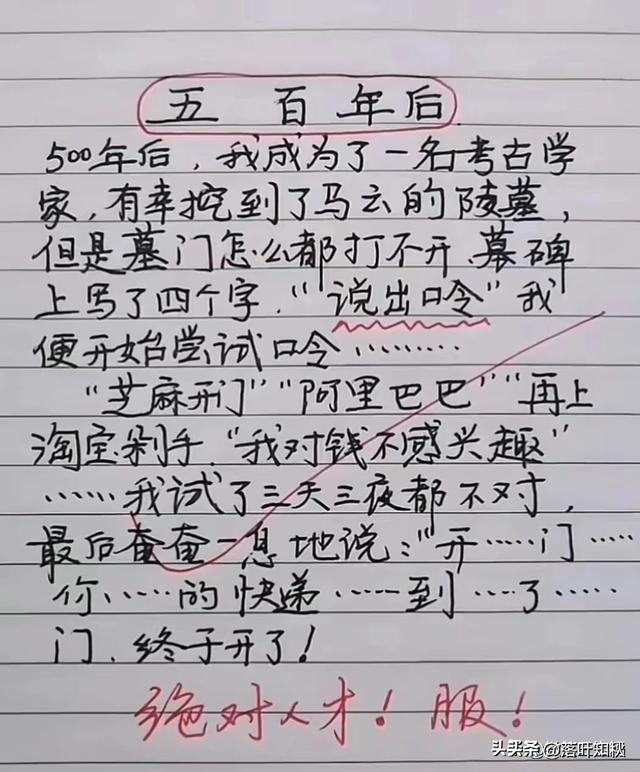 五百年后
500年后，我成为了一名考古学
家，有幸挖到了马云的陵墓，
但是墓门怎么都打不开、墓碑
上写了四个字．“说出口令”我
便开始尝试口令………
“芝麻开门”“阿里巴巴”“再上
淘宝剁手．“我对钱不感兴趣”
……我试了三天三夜都不对，
最后奋奋一息地说：“开……门……
你……的快递……到…了……
门、终于开了！
绝对人才！服！
头条 @落叶知秋